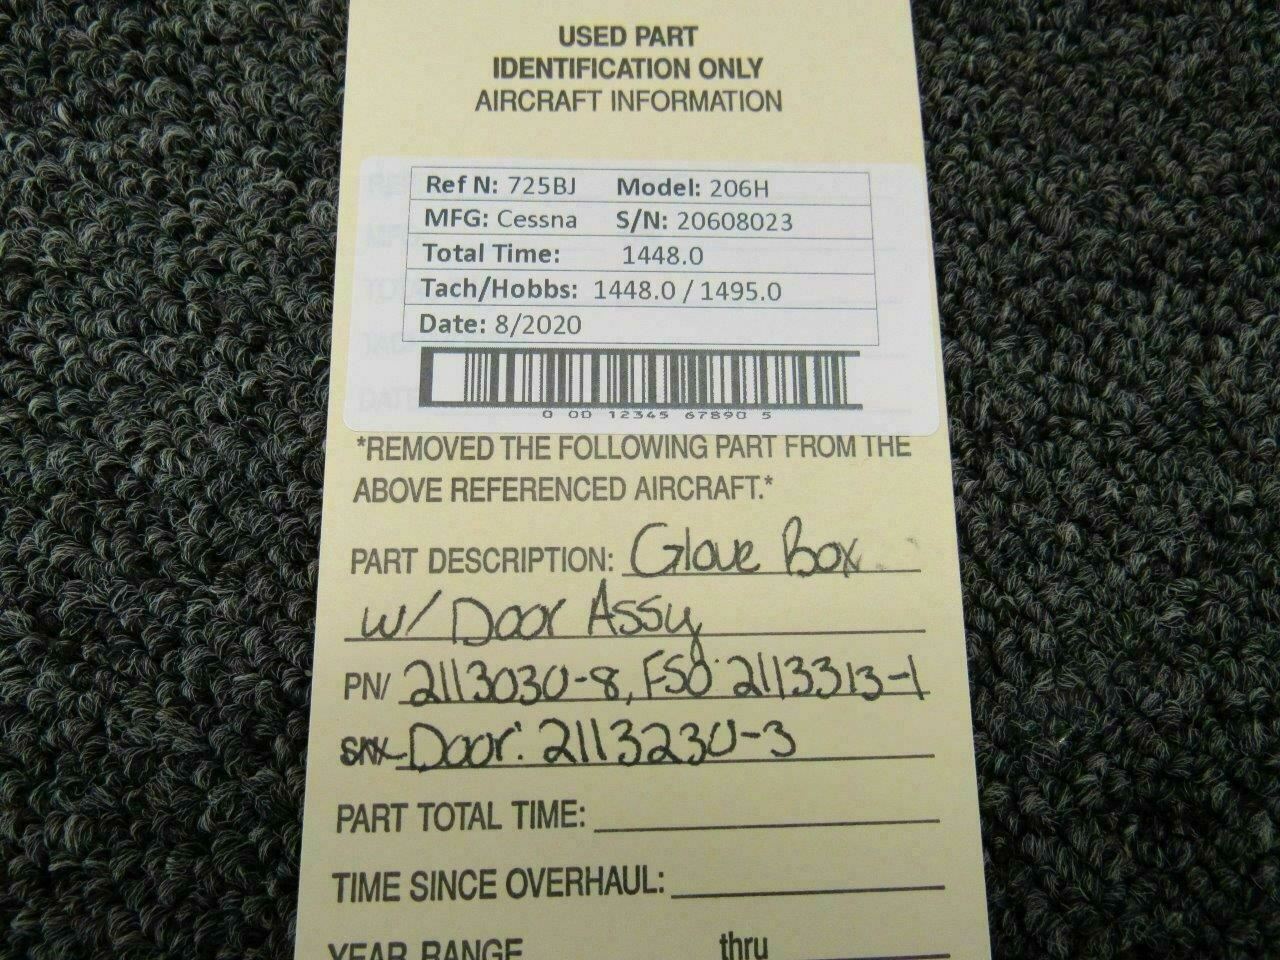 USED PART
IDENTIFICATION ONLY
AIRCRAFT INFORMATION
Ref N: 725BJ Model: 206H
MFG: Cessna S/N: 20608023
Total Time: 1448.0
Tach/Hobbs: 1448.0 / 1495.0
Date: 8/2020
0 00 12345 67890 5
*REMOVED THE FOLLOWING PART FROM THE
ABOVE REFERENCED AIRCRAFT.*
PART DESCRIPTION: Glove Box
w/ Door Assy
PN/ 2113030-8, FSO: 2113313-1
Door: 2113230-3
PART TOTAL TIME:
TIME SINCE OVERHAUL:
YEAR RANGE thru